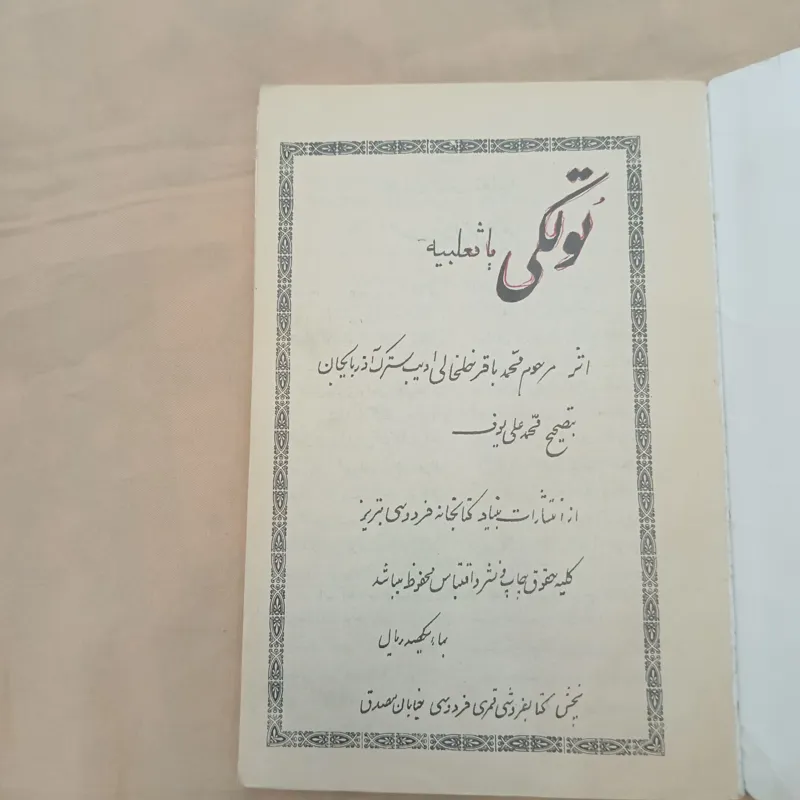 تُولکی یا ثعلبیه
اثر مرحوم محمد باقر خلخالی ادیب سترک آذربایجان
بتصحیح محمد علی یوف
از انتشارات بنیاد کتابخانه فردوسی تبریز
کلیه حقوق چاپ و نشر و اقتباس محفوظ میباشد
بهاء یکصد ریال
پخش کتابفروشی قمری فردوسی خیابان مصدق